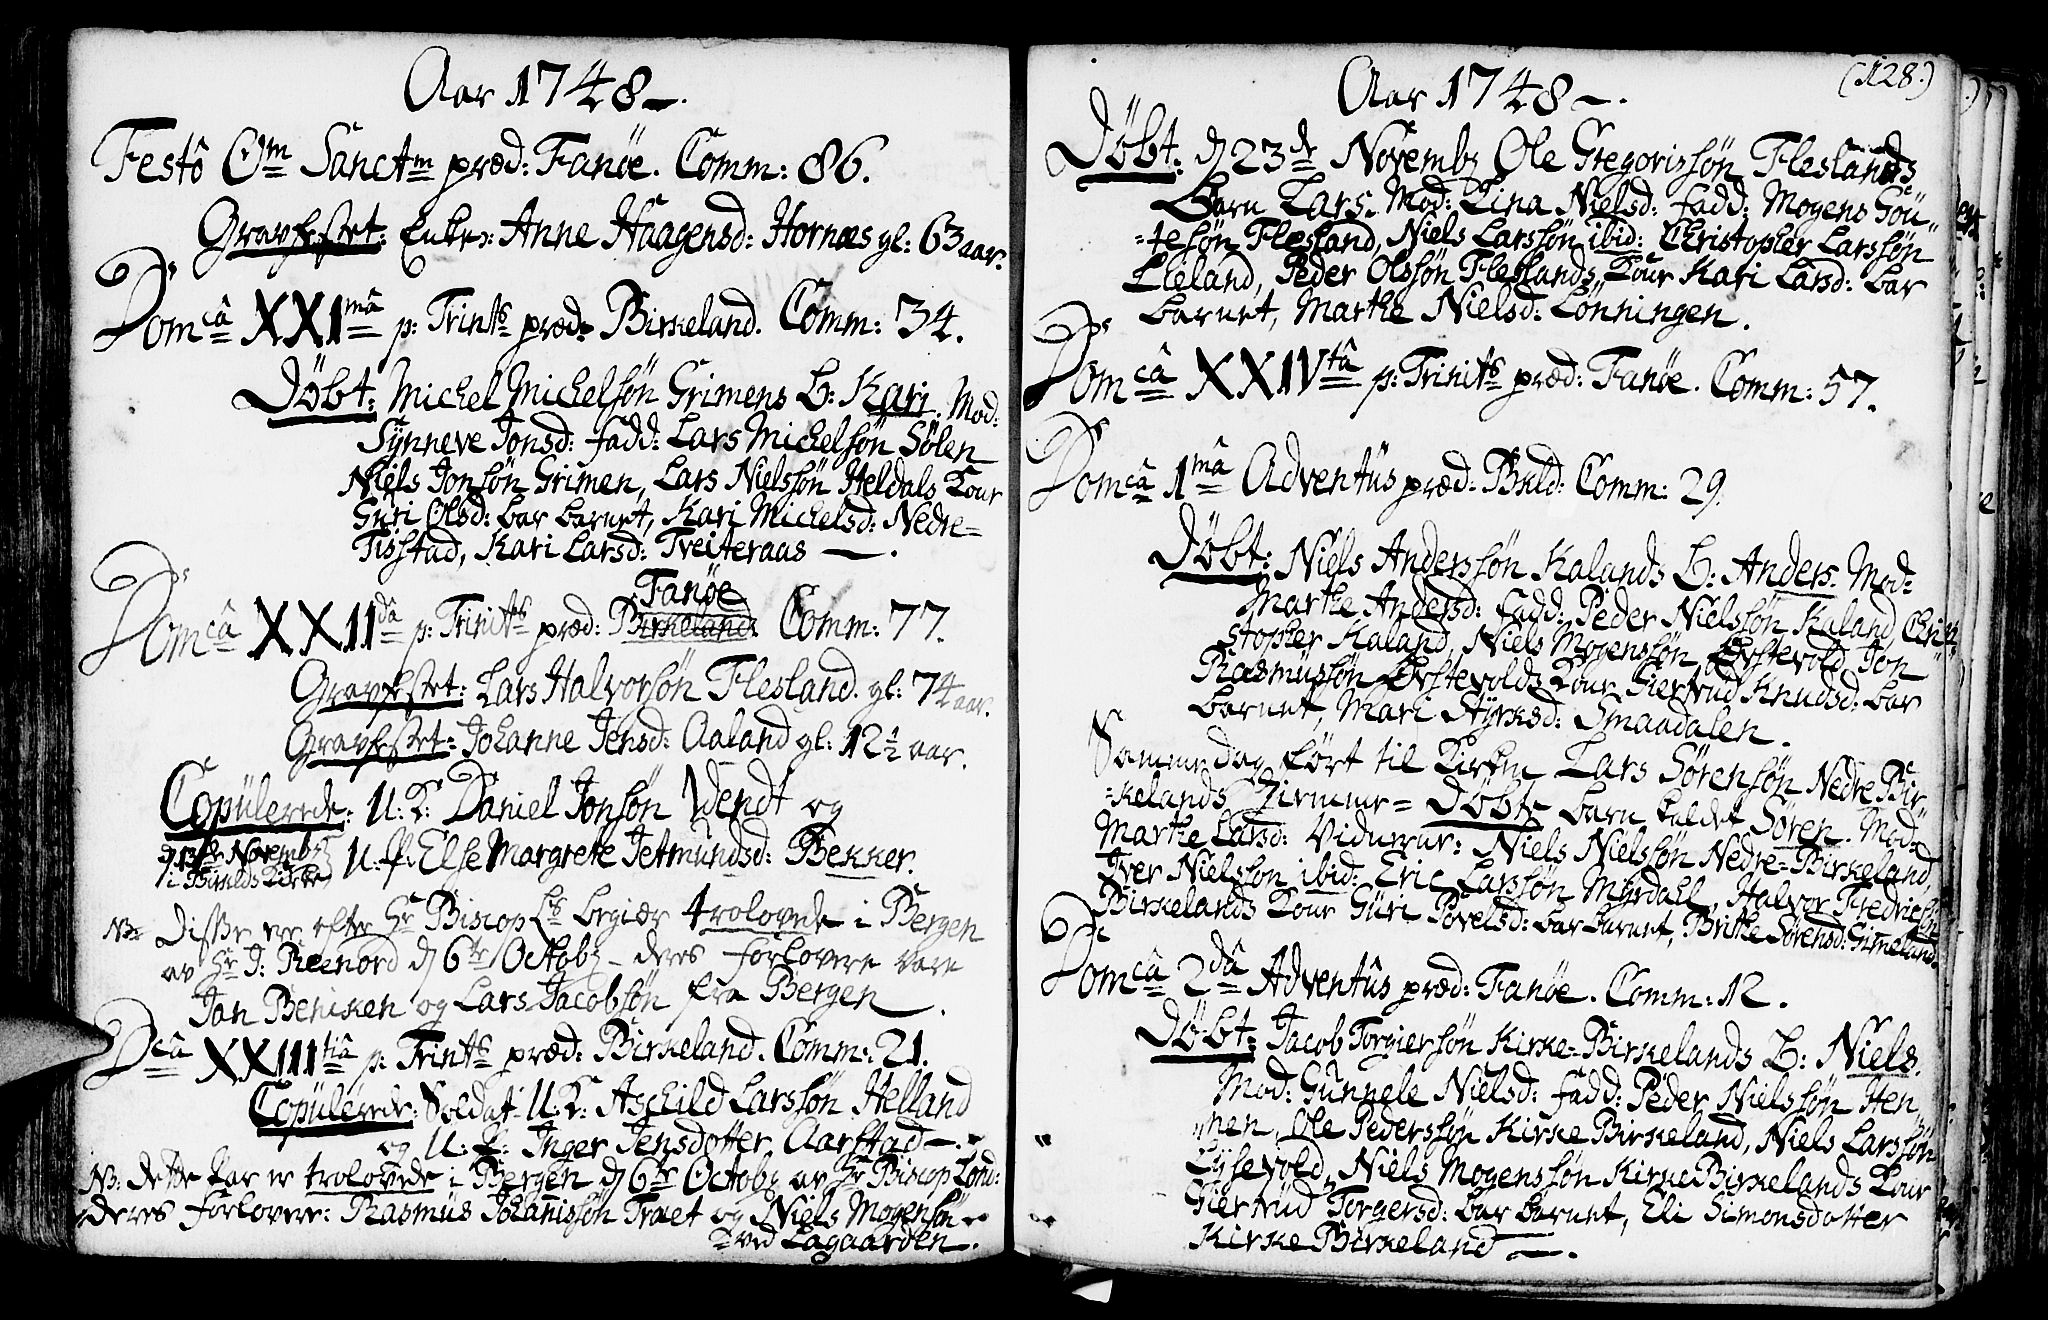 Aar 1748 –.
Festô Om Sanctm præd: Fanöe. Comm: 86.
Gravfestet: Enken Anne Haagensd: Hornæs gl: 63 aar.
Domcâ XXImâ p: Trintts præd: Birkeland. Comm: 34.
Döbt: Michel Michelsön Grimens B: Kari. Mod:
Synneve Jonsd: fadd: Lars Michelsön Sölen
Niels Jonsön Grimen, Lars Nielssön Heldals Kone
Guri Olsd: bar barnet, Kari Michelsd: Nedre-
Tisstad, Kari Larsd: Tveiteraas —.
Fanöe
Domcâ XXIIdâ p: Trinitts præd: Birkeland. Comm: 77.
Gravfestet: Lars Halvorsön Flesland. gl: 74 aar.
Gravfestet: Johanne Jensd: Aaland gl: 12 1/2 aar.
Copulerede: U: K: Daniel Jonsön Wendt og
d 13de Novembr i Birkelds Kirke U: P: Else Margrete Jetmundsd: Bekker.
NB: Disse ere efter Hr Biscop begiær trolovede i Bergen
av Hr J: Reenord d 6te Octobr – deres forlovere vare
Jan Beniken og Lars Jacobsön fra Bergen.
Dcâ XXIIItiâ p: Trintts præd: Birkeland. Comm: 21.
Copulerede: Soldat U: K: Aschild Larssön Helland
og U: P: Inger Jensdotter Aarstad —.
NB: dette par er trolovede i Bergen d 6te Octobr av Hr Biscop
deres forlovere: Rasmus Johanissön Træt og Niels Mogensön
ved Lagaarden.
(128.)
Aar 1748 –.
Döbt: d 23de Novembr Ole Gregorissön Fleslands
Barn Lars. Mod: Lina Nielsd: fadd: Mogens Gou-
-tesön Flesland, Niels Larssön ibid: Christopher Larssön
Lieland, Peder Olssön Fleslands Kone Kari Larsd: bar
barnet, Marthe Nielsd: Lönningen.
Domcâ XXIVtâ p: Trinitts præd: Fanöe. Comm: 57.
Domcâ 1mâ Adventûs præd: Bkld: Comm: 29.
Döbt: Niels Anderssön Kalands B: Anders. Mod:
Marthe Andersd: fadd: Peder Nielssön Kaland Chri-
stopher Kaland, Niels Mogenssön Övstevold, Jon
Rasmussön Övstevolds Kone Giertrud Knudsd: bar
barnet, Mari Styrksd: Smaadalen.
Samme dag fört til Kirken Lars Sörensön Nedre Bir-
-kelands Hiemme- Döbte barn kaldet Sören. Mod:
Marthe Larsd: Niels Nielssön Nedre-Birkeland,
Iver Nielsson ibid: Eric Larssön Myrdahl, Halvor Fredricsön
Birkelands Kone Guri Povelsd: bar barnet, Brithe Sörensd: Grimeland.
Domcâ 2dâ Adventûs præd: Fanöe. Comm: 12.
Döbt: Jacob Torgiersön Kirke-Birkelands B: Niels.
Mod: Gunnele Nielsd: fadd: Peder Nielssön Hen-
-men, Ole Pederssön Kirke Birkeland, Niels Larssön
Lysevold, Niels Mogenssön Kirke Birkelands Kone
Giertrud Torgersd: bar barnet, Eli Simonsdotter
Kirke Birkeland —.